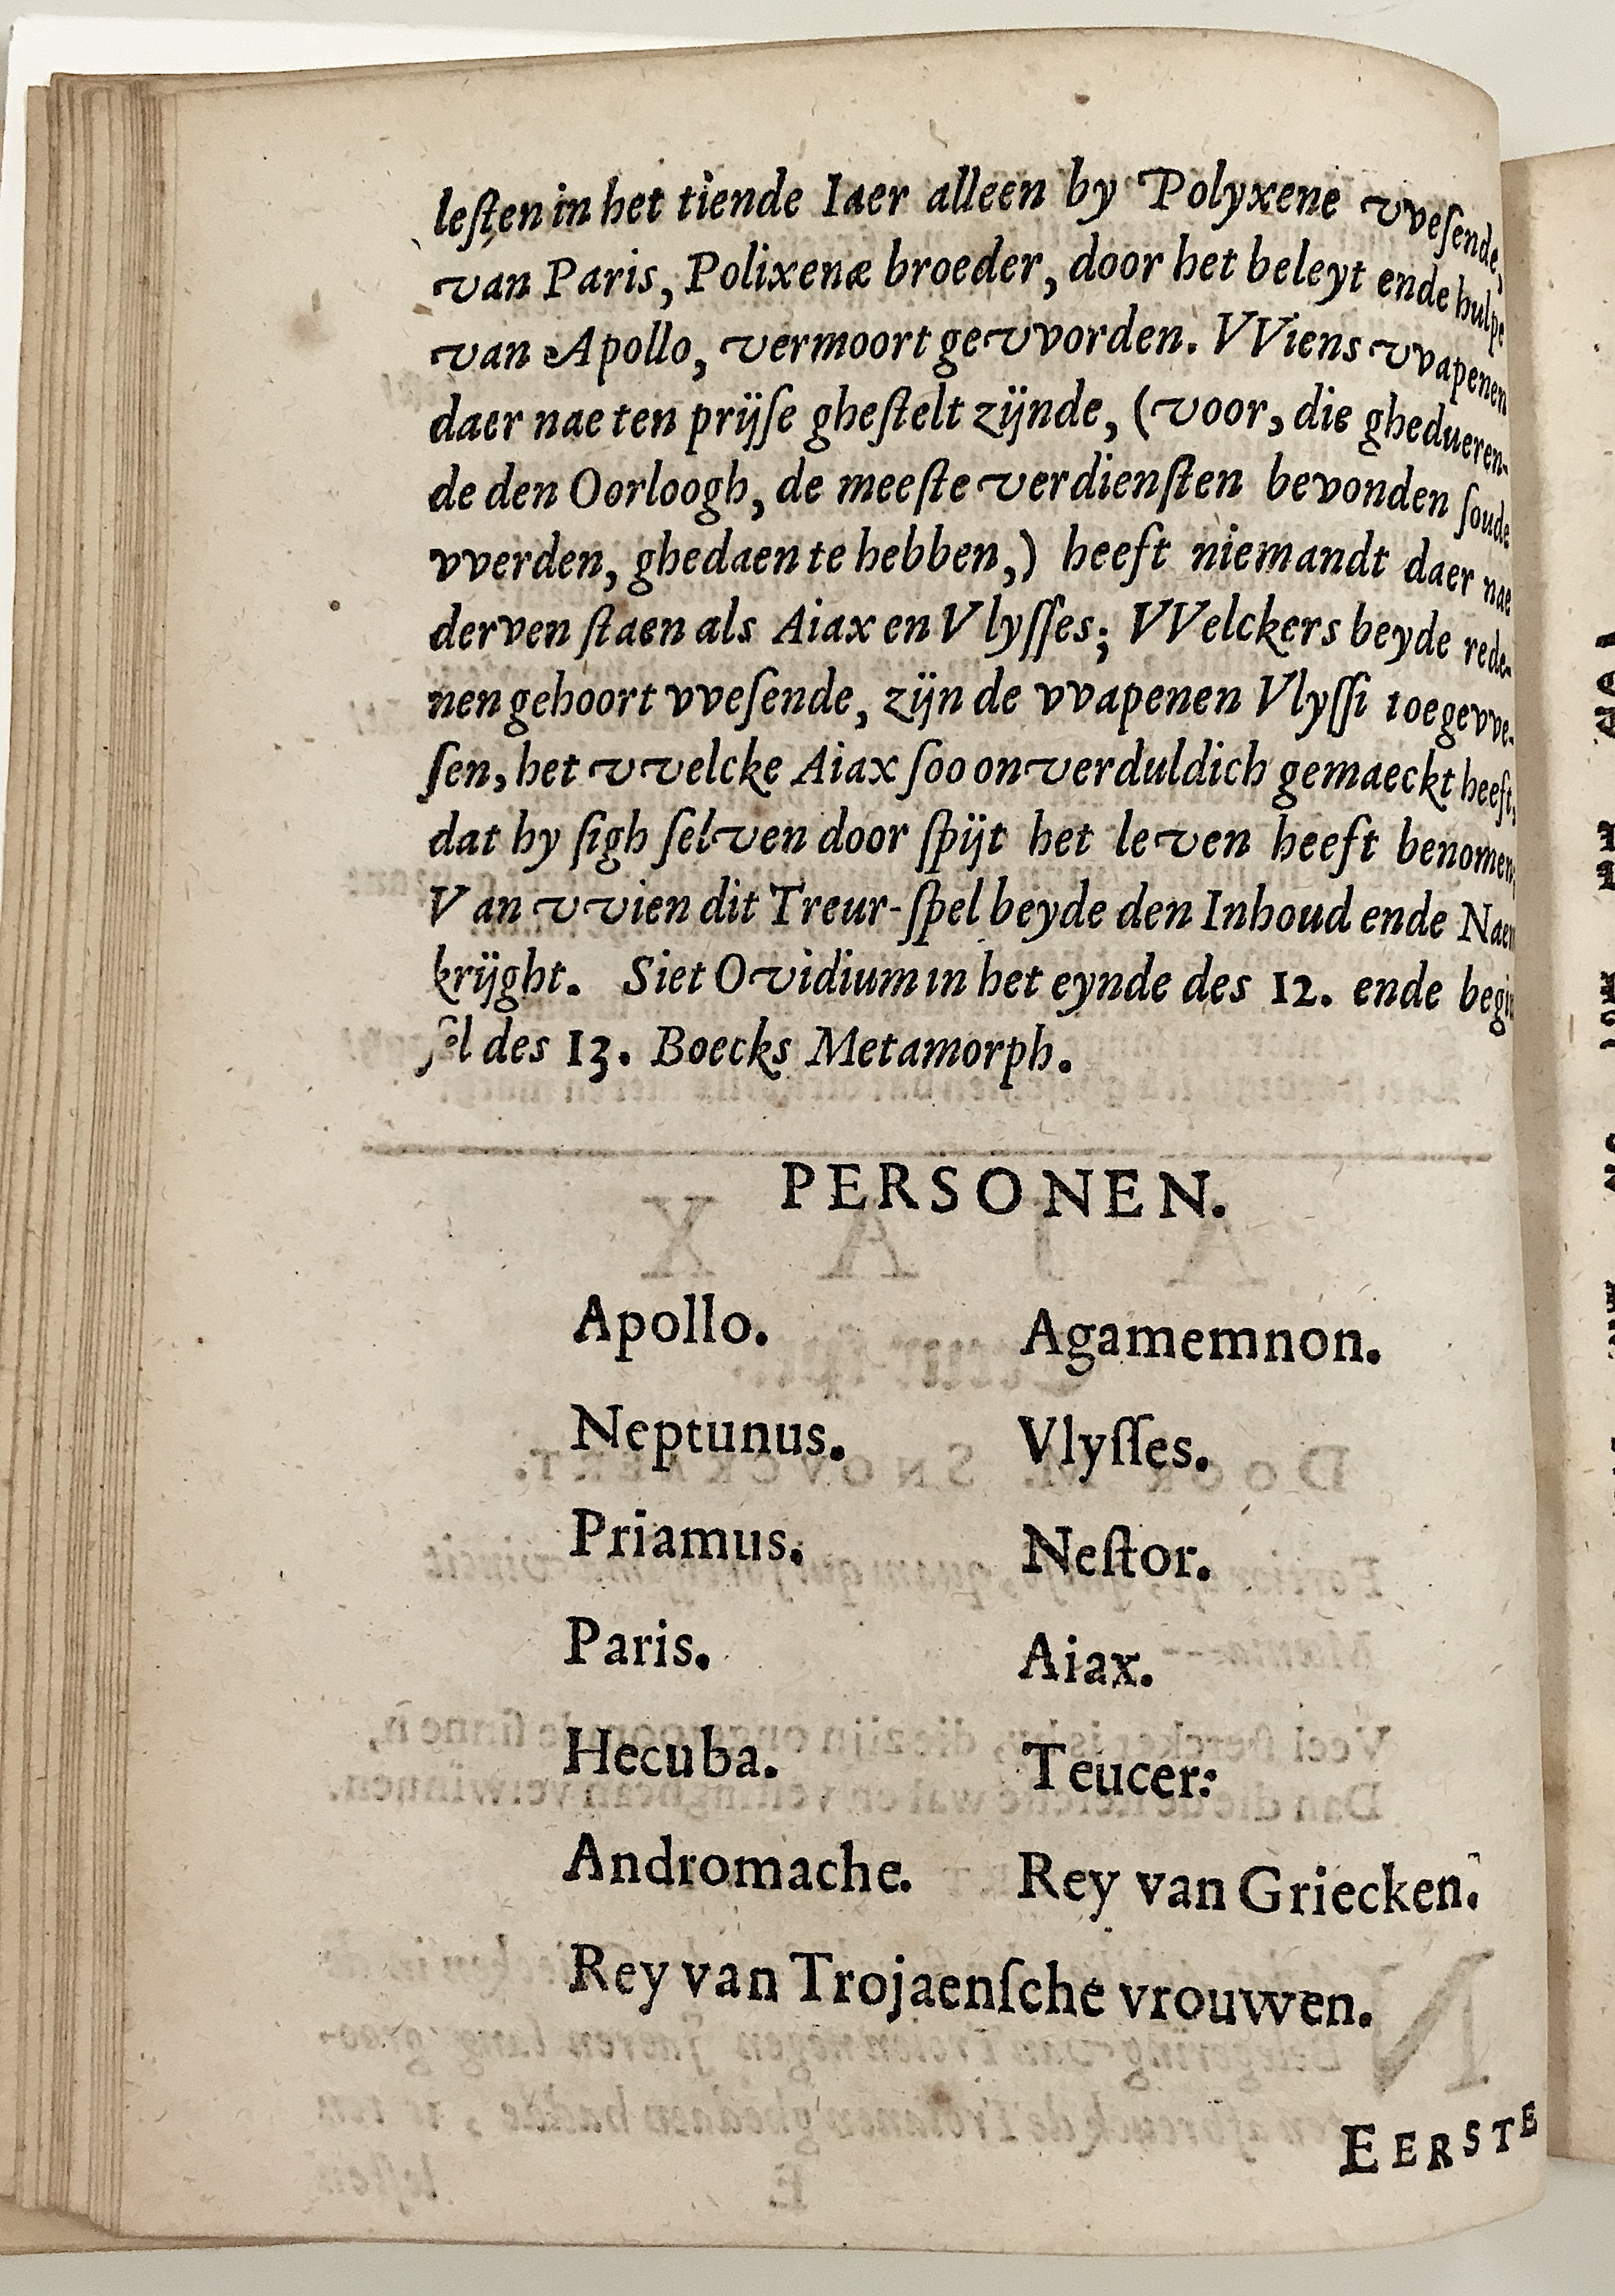 leſten in het tiende Iaer alleen by Polyxene vveſende,
van Paris, Polixenæ broeder, door het beleyt ende hulpe
van Apollo, vermoort gevvorden. VViens vvapenen
daer nae ten prijſe gheſtelt zijnde, (voor, die ghedueren-
de den Oorloogh, de meeſte verdienſten bevonden ſoude
vverden, ghedaen te hebben,) heeft niemandt daer nae
derven ſtaen als Aiax en Vlyſſes; VVelckers beyde rede-
nen gehoort vveſende, zijn de vvapenen Vlyſſi toegevve-
ſen, het vvelcke Aiax ſoo onverduldich gemaeckt heeft,
dat hy ſigh ſelven door ſpijt het leven heeft benomen,
Van vvien dit Treur-ſpel beyde den Inhoud ende Naem
krijght. Siet Ovidium in het eynde des 12. ende begin
ſel des 13. Boecks Metamorph.
PERSONEN.
Apollo. Agamemnon.
Neptunus. Vlyſſes.
Priamus. Neſtor.
Paris. Aiax.
Hecuba. Teucer:
Andromache. Rey van Griecken.
Rey van Trojaenſche vrouwen.
EERSTE